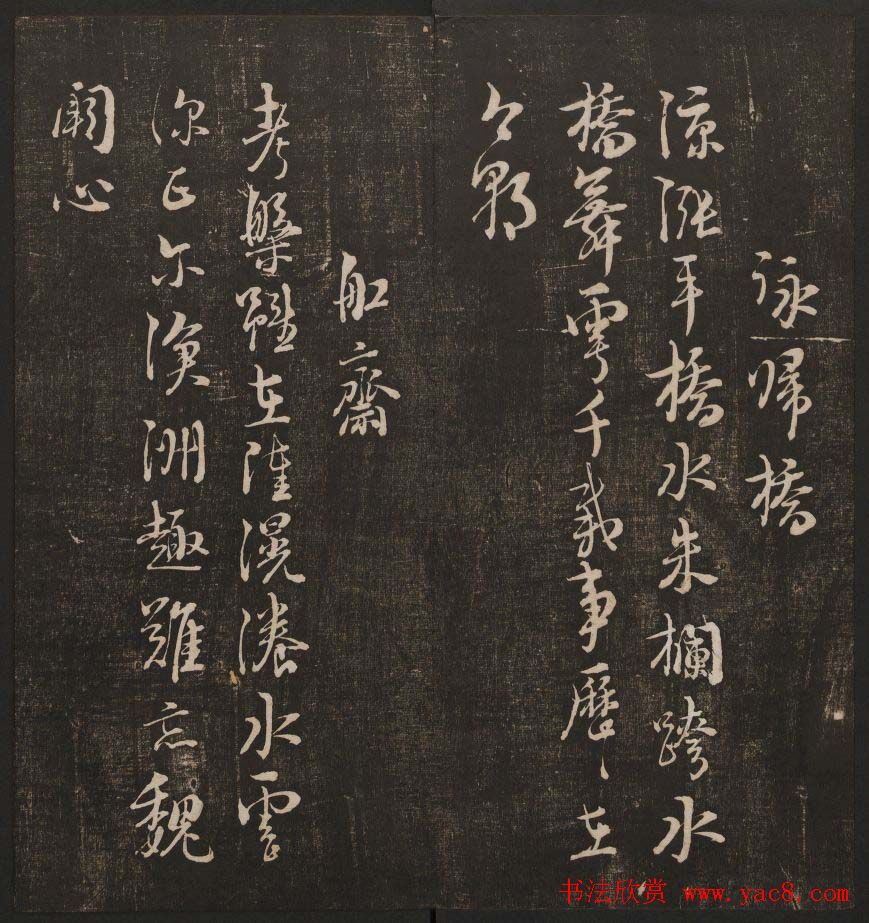 詠帰橋
涼漲平橋水朱欄跨水
橋舞雩千載事歷々在
今朝
舡齋
考槃雖在陸滉瀁水雲
深正尔滄洲趣難忘魏
闕心
书法欣赏 www.yac8.com